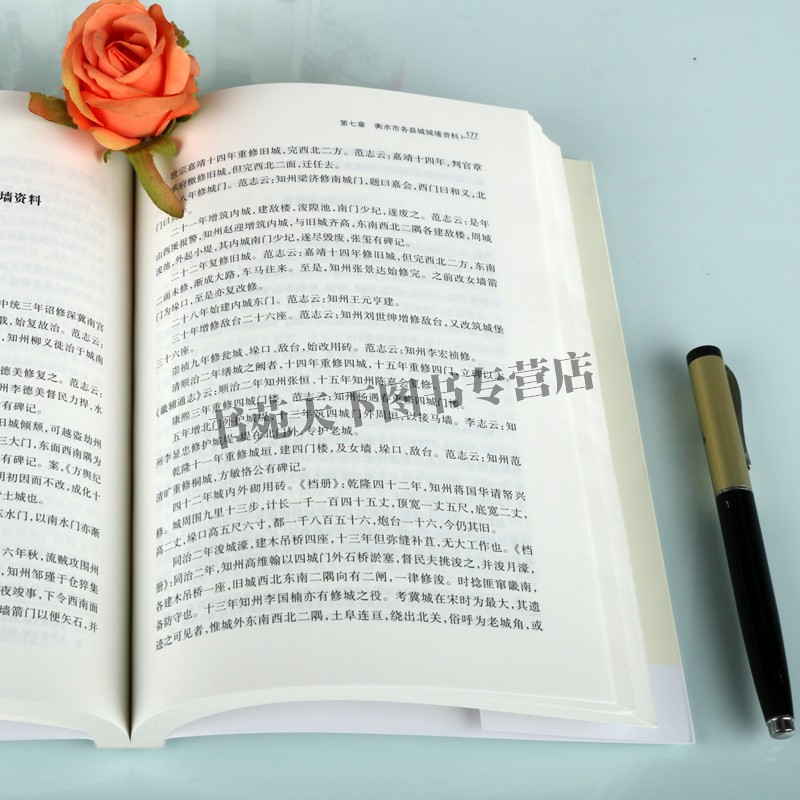 墙资料
中统三年诏修深冀南宫
载,始复故治。范志云:
,知州柳义徙治于城南
德美修复之。范志云:
州李德美督民力捍,水
有碑记。
旧城倾颓,可越盗劫州
三大门,东面西南隅为
有碑记。案,《方舆纪
明初因而不改,成化十
土城也。
水门,以南水门亦渐
六年秋,流贼攻围州
知州邹瑾于仓猝集
夜竣事,下令西南面
墙箭门以便矢石,并
第七章 衡水市各县城城墙资料 177
世宗嘉靖十四年重修旧城,完西北二方。范志云:嘉靖十四年,判官章
承府檄修旧城,但完西北二面,迁任去。
八年修城门。范志云:知州梁济修南城门,题曰嘉会,西门曰和义,北
门曰
二十一年增筑内城,建敌楼,浚隍池,南门少圮,遂废之。范志云:是年
山西屡报警,知州赵迎增筑内城,与旧城齐高,东南西北二隅各建敌楼,周城
浚池,外起小堤,其内城南门少圮,遂尽毁废,张玺有碑记。
二十二年复修旧城。范志云:嘉靖十四年修旧城,但完西北二方,东南
二面未修,渐成大路,车马往来。至是,知州张景达始修完。之前改女墙箭
门为垛口,至是亦复改修。
二十八年始建内城东门。范志云:知州王元亨建。
三十年增修敌台二十六座。范志云:知州刘世绅增修敌台,又改筑城堡
三十六座。
崇祯九年修瓮城、垛口、敌台,始改用砖。范志云:知州李宏祯修。
清顺治二年缮城之阙者,十四年重修四城,十五年重修四门,立
《畿辅通志》云:顺治二年知州张恒、十五年知州陈嘉会复修。
康熙三年重修四城门楼。范志云:知州杨遇春重修四城门楼。
五年增北门外护城堤,十三年筑四城门外周垣,以接马墙。李志云:知
州李显忠修护城堤,是在北门外,专护老城。
乾隆十一年重修城垣,建四门楼,及女墙、垛口、敌台。范志云:知州范
清旷重修桐城,方敏恪公有碑记。
四十二年城内外砌用砖。《档册》:乾隆四十二年,知州蒋国华请帑兴
修。城周围九里十三步,计长一千一百四十五丈,顶宽一丈五尺,底宽二丈,
高二丈,垛口高五尺六寸,都一千八百五十六,炮台一十六,今仍其旧。
同治二年浚城濠,建木吊桥四座,十三年但弥缝补苴,无大工作也。《档
册》:同治二年,知州高维翰以四城门外石桥淤塞,督民夫挑浚之,并浚月濠,
各建木吊桥一座,旧城西北东南二隅向有二闸,一律修浚。时捻匪窜畿南,
备防守也。十三年知州李国楠亦有修城之役。考冀城在宋时为最大,其遗
迹之可见者,惟城外东南西北二隅,土阜连亘,绕出北关,俗呼为老城角,或
书苑天下图书专营店